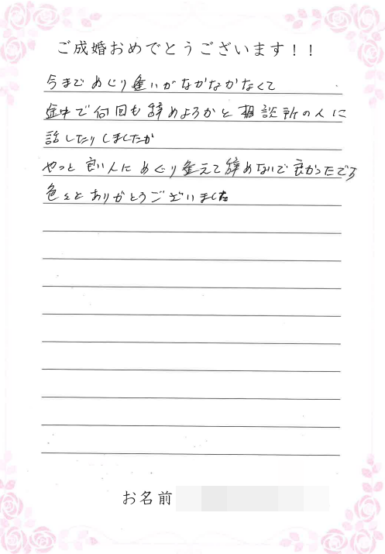 ご成婚おめでとうございます！！
今までめぐり逢いがなかなかなくて
途中で何回も辞めようかと相談所の人に
話したりしましたが
やっと良い人にめぐり逢えて辞めないで良かったです
色々とありがとうございました
お名前